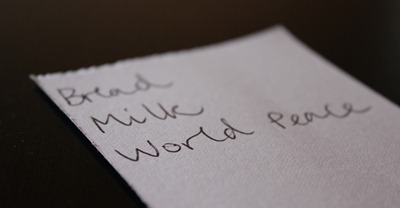 Bread
Milk
World Peace